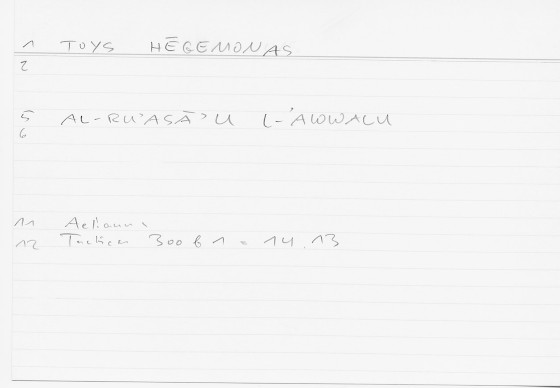 1 TOYS HĒGEMONAS
2
5 AL-RU'ASĀ'U L-'AWWALU
6
11 Aelianus
12 Tactica 300 b 1 = 14.13